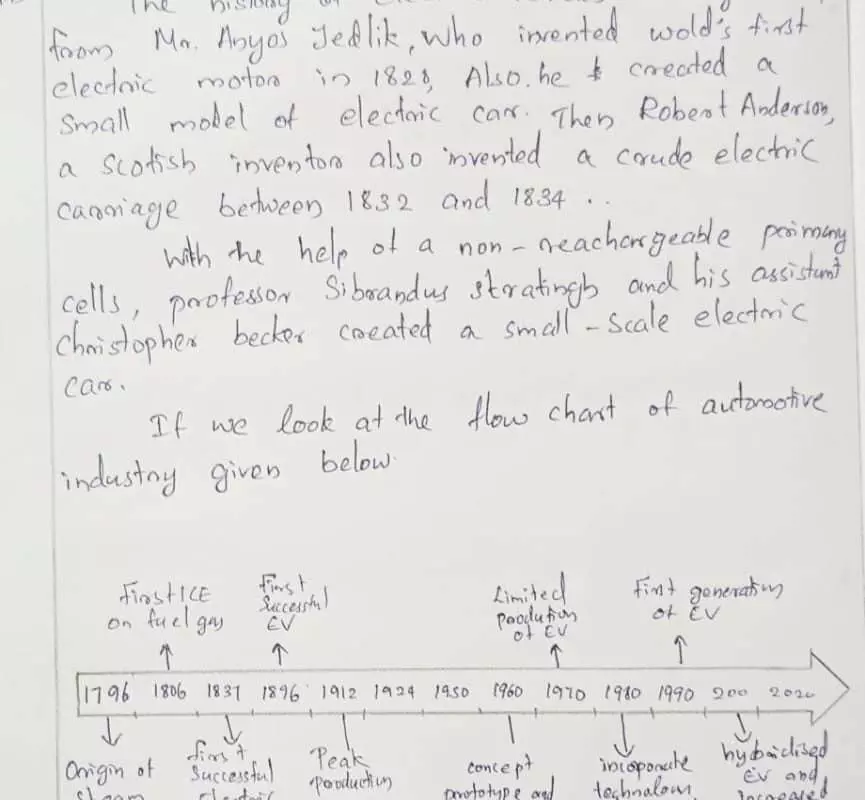 The history of
from Mr. Anyos Jedlik, who invented wold's first
electric motor in 1828, Also. he created a
small model of electric car. Then Robert Anderson,
a scotish inventor also invented a crude electric
carriage between 1832 and 1834 ..
With the help of a non-reachargeable primary
cells, professor Sibrandus stratingh and his assistant
Christopher becker created a small-scale electric
car.
If we look at the flow chart of automotive
industry given below.
First ICE
on fuel gas
First
Successful
EV
Limited
Production
of EV
First generation
of EV
1796 1806 1837 1896 1912 1924 1950 1960 1970 1980 1990 200 2020
Origin of
steam
first
Successful
electric
Peak
Production
concept
prototype and
incoporate
technology
hybridised
EV and
increased